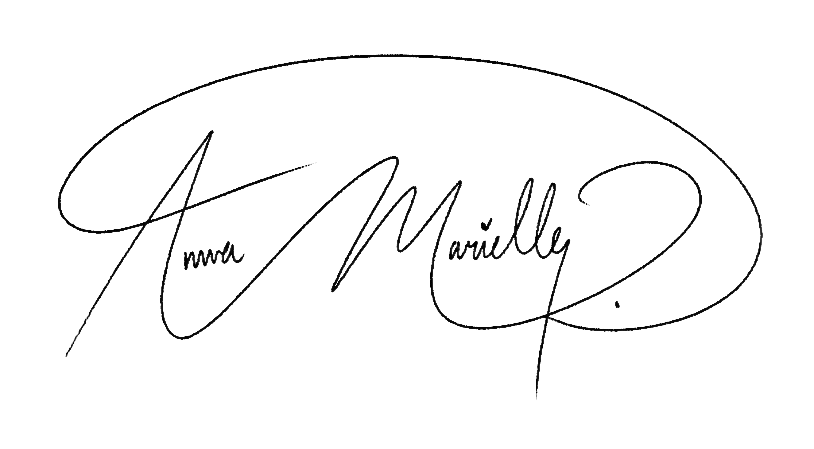 Anna Marielly